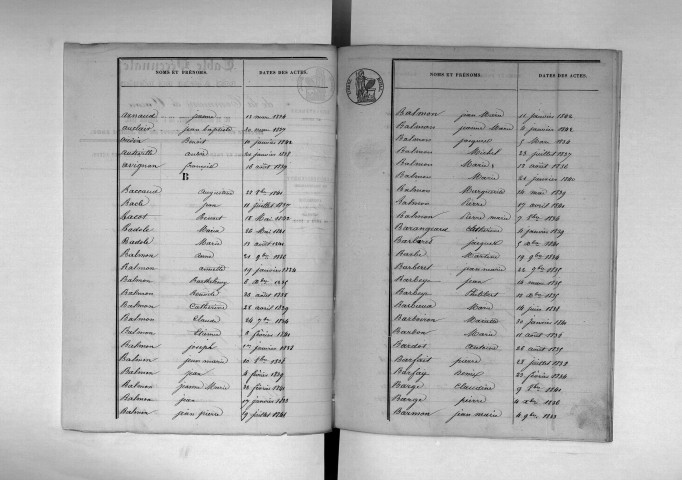 NOMS ET PRÉNOMS. DATES DES ACTES.
Arnaud jeanne 13 mars 1834
auclair jean baptiste 20 mars 1837
Benoit 10 janvier 1842
andré 20 janvier 1838
avignon françois 16 août 1839
B
Baccaud augustine 22 8bre 1840
Bacle jean 11 juillet 1837
Bacot Benoit 18 Mai 1842
Badole Maria 26 Mai 1841
Badole Marie 13 août 1841
Balmon anne 21 9bre 1836
Balmon annette 19 janvier 1834
Balmon Barthélemy 6 Xbre 1835
Balmon Benoit 23 août 1838
Balmon Catherine 28 avril 1839
Balmon Claude 24 7bre 1834
Balmon Etienne 2 février 1841
Balmon joseph 1er janvier 1838
Balmon jean marie 10 8bre 1838
Balmon jean 4 février 1839
Balmon jeanne Marie 22 février 1841
Balmon jean 17 janvier 1833
Balmon jean pierre 19 juillet 1841
NOMS ET PRÉNOMS. DATES DES ACTES.
Balmon jean Marie 12 janvier 1842
Balmon jeanne Marie 2 janvier 1842
Balmon jacques 5 Mars 1834
Balmon Michel 23 juillet 1837
Balmon Marie 12 août 1836
Balmon Marie 21 janvier 1840
Balmon Marguerite 24 mai 1839
Balmon Pierre 17 avril 1841
Balmon Pierre marie 7 8bre 1834
Barangeard Catherine 2 janvier 1839
Barbaret jacques 5 Xbre 1841
Barbe Martin 19 9bre 1834
Barberet jean marie 22 9bre 1835
Barbeye jean 14 mars 1835
Barbeye Philibert 10 Xbre 1835
Marie 14 juin 1838
20 janvier 1841
Barbon Marie 11 août 1836
Bardot antoine 26 août 1835
Barfait pierre 28 juillet 1839
Barfay Denise 23 février 1834
Barge Claudine 9 8bre 1841
Barge pierre 4 Xbre 1836
Barmon jean marie 4 9bre 1833